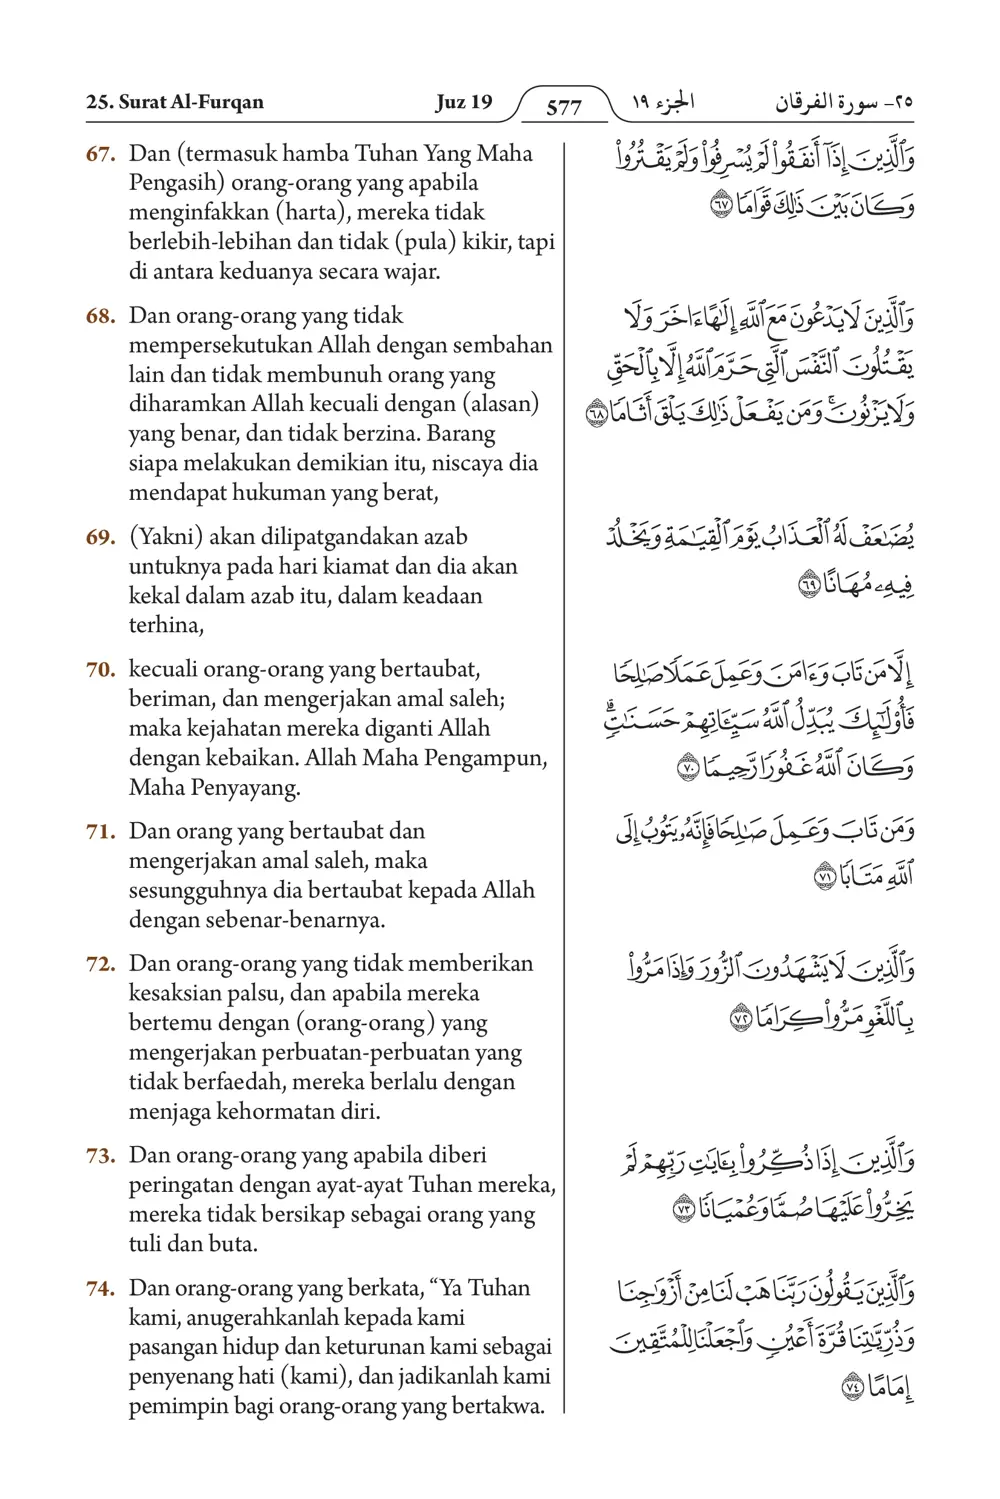 25. Surat Al-Furqan Juz 19 577 الجزء ١٩ ٢٥- سورة الفرقان
67. Dan (termasuk hamba Tuhan Yang Maha
Pengasih) orang-orang yang apabila
menginfakkan (harta), mereka tidak
berlebih-lebihan dan tidak (pula) kikir, tapi
di antara keduanya secara wajar.
وَٱلَّذِينَ إِذَآ أَنفَقُوا۟ لَمْ يُسْرِفُوا۟ وَلَمْ يَقْتُرُوا۟
وَكَانَ بَيْنَ ذَٰلِكَ قَوَامًا ٦٧
68. Dan orang-orang yang tidak
mempersekutukan Allah dengan sembahan
lain dan tidak membunuh orang yang
diharamkan Allah kecuali dengan (alasan)
yang benar, dan tidak berzina. Barang
siapa melakukan demikian itu, niscaya dia
mendapat hukuman yang berat,
وَٱلَّذِينَ لَا يَدْعُونَ مَعَ ٱللَّهِ إِلَٰهًا ءَاخَرَ وَلَا
يَقْتُلُونَ ٱلنَّفْسَ ٱلَّتِى حَرَّمَ ٱللَّهُ إِلَّا بِٱلْحَقِّ
وَلَا يَزْنُونَ ۚ وَمَن يَفْعَلْ ذَٰلِكَ يَلْقَ أَثَامًا ٦٨
69. (Yakni) akan dilipatgandakan azab
untuknya pada hari kiamat dan dia akan
kekal dalam azab itu, dalam keadaan
terhina,
يُضَٰعَفْ لَهُ ٱلْعَذَابُ يَوْمَ ٱلْقِيَٰمَةِ وَيَخْلُدْ
فِيهِۦ مُهَانًا ٦٩
70. kecuali orang-orang yang bertaubat,
beriman, dan mengerjakan amal saleh;
maka kejahatan mereka diganti Allah
dengan kebaikan. Allah Maha Pengampun,
Maha Penyayang.
إِلَّا مَن تَابَ وَءَامَنَ وَعَمِلَ عَمَلًا صَٰلِحًا
فَأُو۟لَٰٓئِكَ يُبَدِّلُ ٱللَّهُ سَيِّـَٔاتِهِمْ حَسَنَٰتٍ ۗ
وَكَانَ ٱللَّهُ غَفُورًا رَّحِيمًا ٧٠
71. Dan orang yang bertaubat dan
mengerjakan amal saleh, maka
sesungguhnya dia bertaubat kepada Allah
dengan sebenar-benarnya.
وَمَن تَابَ وَعَمِلَ صَٰلِحًا فَإِنَّهُۥ يَتُوبُ إِلَى
ٱللَّهِ مَتَابًا ٧١
72. Dan orang-orang yang tidak memberikan
kesaksian palsu, dan apabila mereka
bertemu dengan (orang-orang) yang
mengerjakan perbuatan-perbuatan yang
tidak berfaedah, mereka berlalu dengan
menjaga kehormatan diri.
وَٱلَّذِينَ لَا يَشْهَدُونَ ٱلزُّورَ وَإِذَا مَرُّوا۟
بِٱللَّغْوِ مَرُّوا۟ كِرَامًا ٧٢
73. Dan orang-orang yang apabila diberi
peringatan dengan ayat-ayat Tuhan mereka,
mereka tidak bersikap sebagai orang yang
tuli dan buta.
وَٱلَّذِينَ إِذَا ذُكِّرُوا۟ بِـَٔايَٰتِ رَبِّهِمْ لَمْ
يَخِرُّوا۟ عَلَيْهَا صُمًّا وَعُمْيَانًا ٧٣
74. Dan orang-orang yang berkata, “Ya Tuhan
kami, anugerahkanlah kepada kami
pasangan hidup dan keturunan kami sebagai
penyenang hati (kami), dan jadikanlah kami
pemimpin bagi orang-orang yang bertakwa.
وَٱلَّذِينَ يَقُولُونَ رَبَّنَا هَبْ لَنَا مِنْ أَزْوَٰجِنَا
وَذُرِّيَّٰتِنَا قُرَّةَ أَعْيُنٍ وَٱجْعَلْنَا لِلْمُتَّقِينَ
إِمَامًا ٧٤